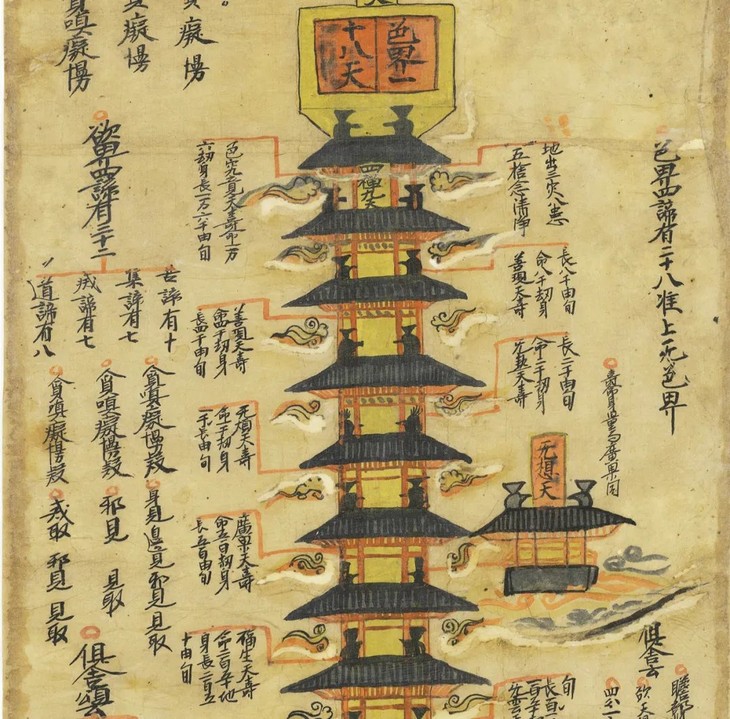 色界四諦有二十八准上无色界
无想天
色界一
十八天
四禪九天
五捨念清淨
地出三灾八患
命八千劫身
長八千由旬
无熱天壽
命二千劫身
長二千由旬
色究竟天壽命一万
六千劫身長一万六千由旬
善現天壽
命四千劫身
長四千由旬
无煩天壽
命一千劫身
廣果天壽
命五百劫身
長五百由旬
福生天壽
身長二百五
十由旬
癡慢
癡慢
嗔癡慢
欲界四諦有三十二
苦諦有十
集諦有七
滅諦有七
道諦有八
貪嗔癡慢疑 身見邊見邪見見取
貪嗔癡慢疑 邪見 見取
貪嗔癡慢疑 戒取 邪見 見取
俱舍頌云
俱舍云